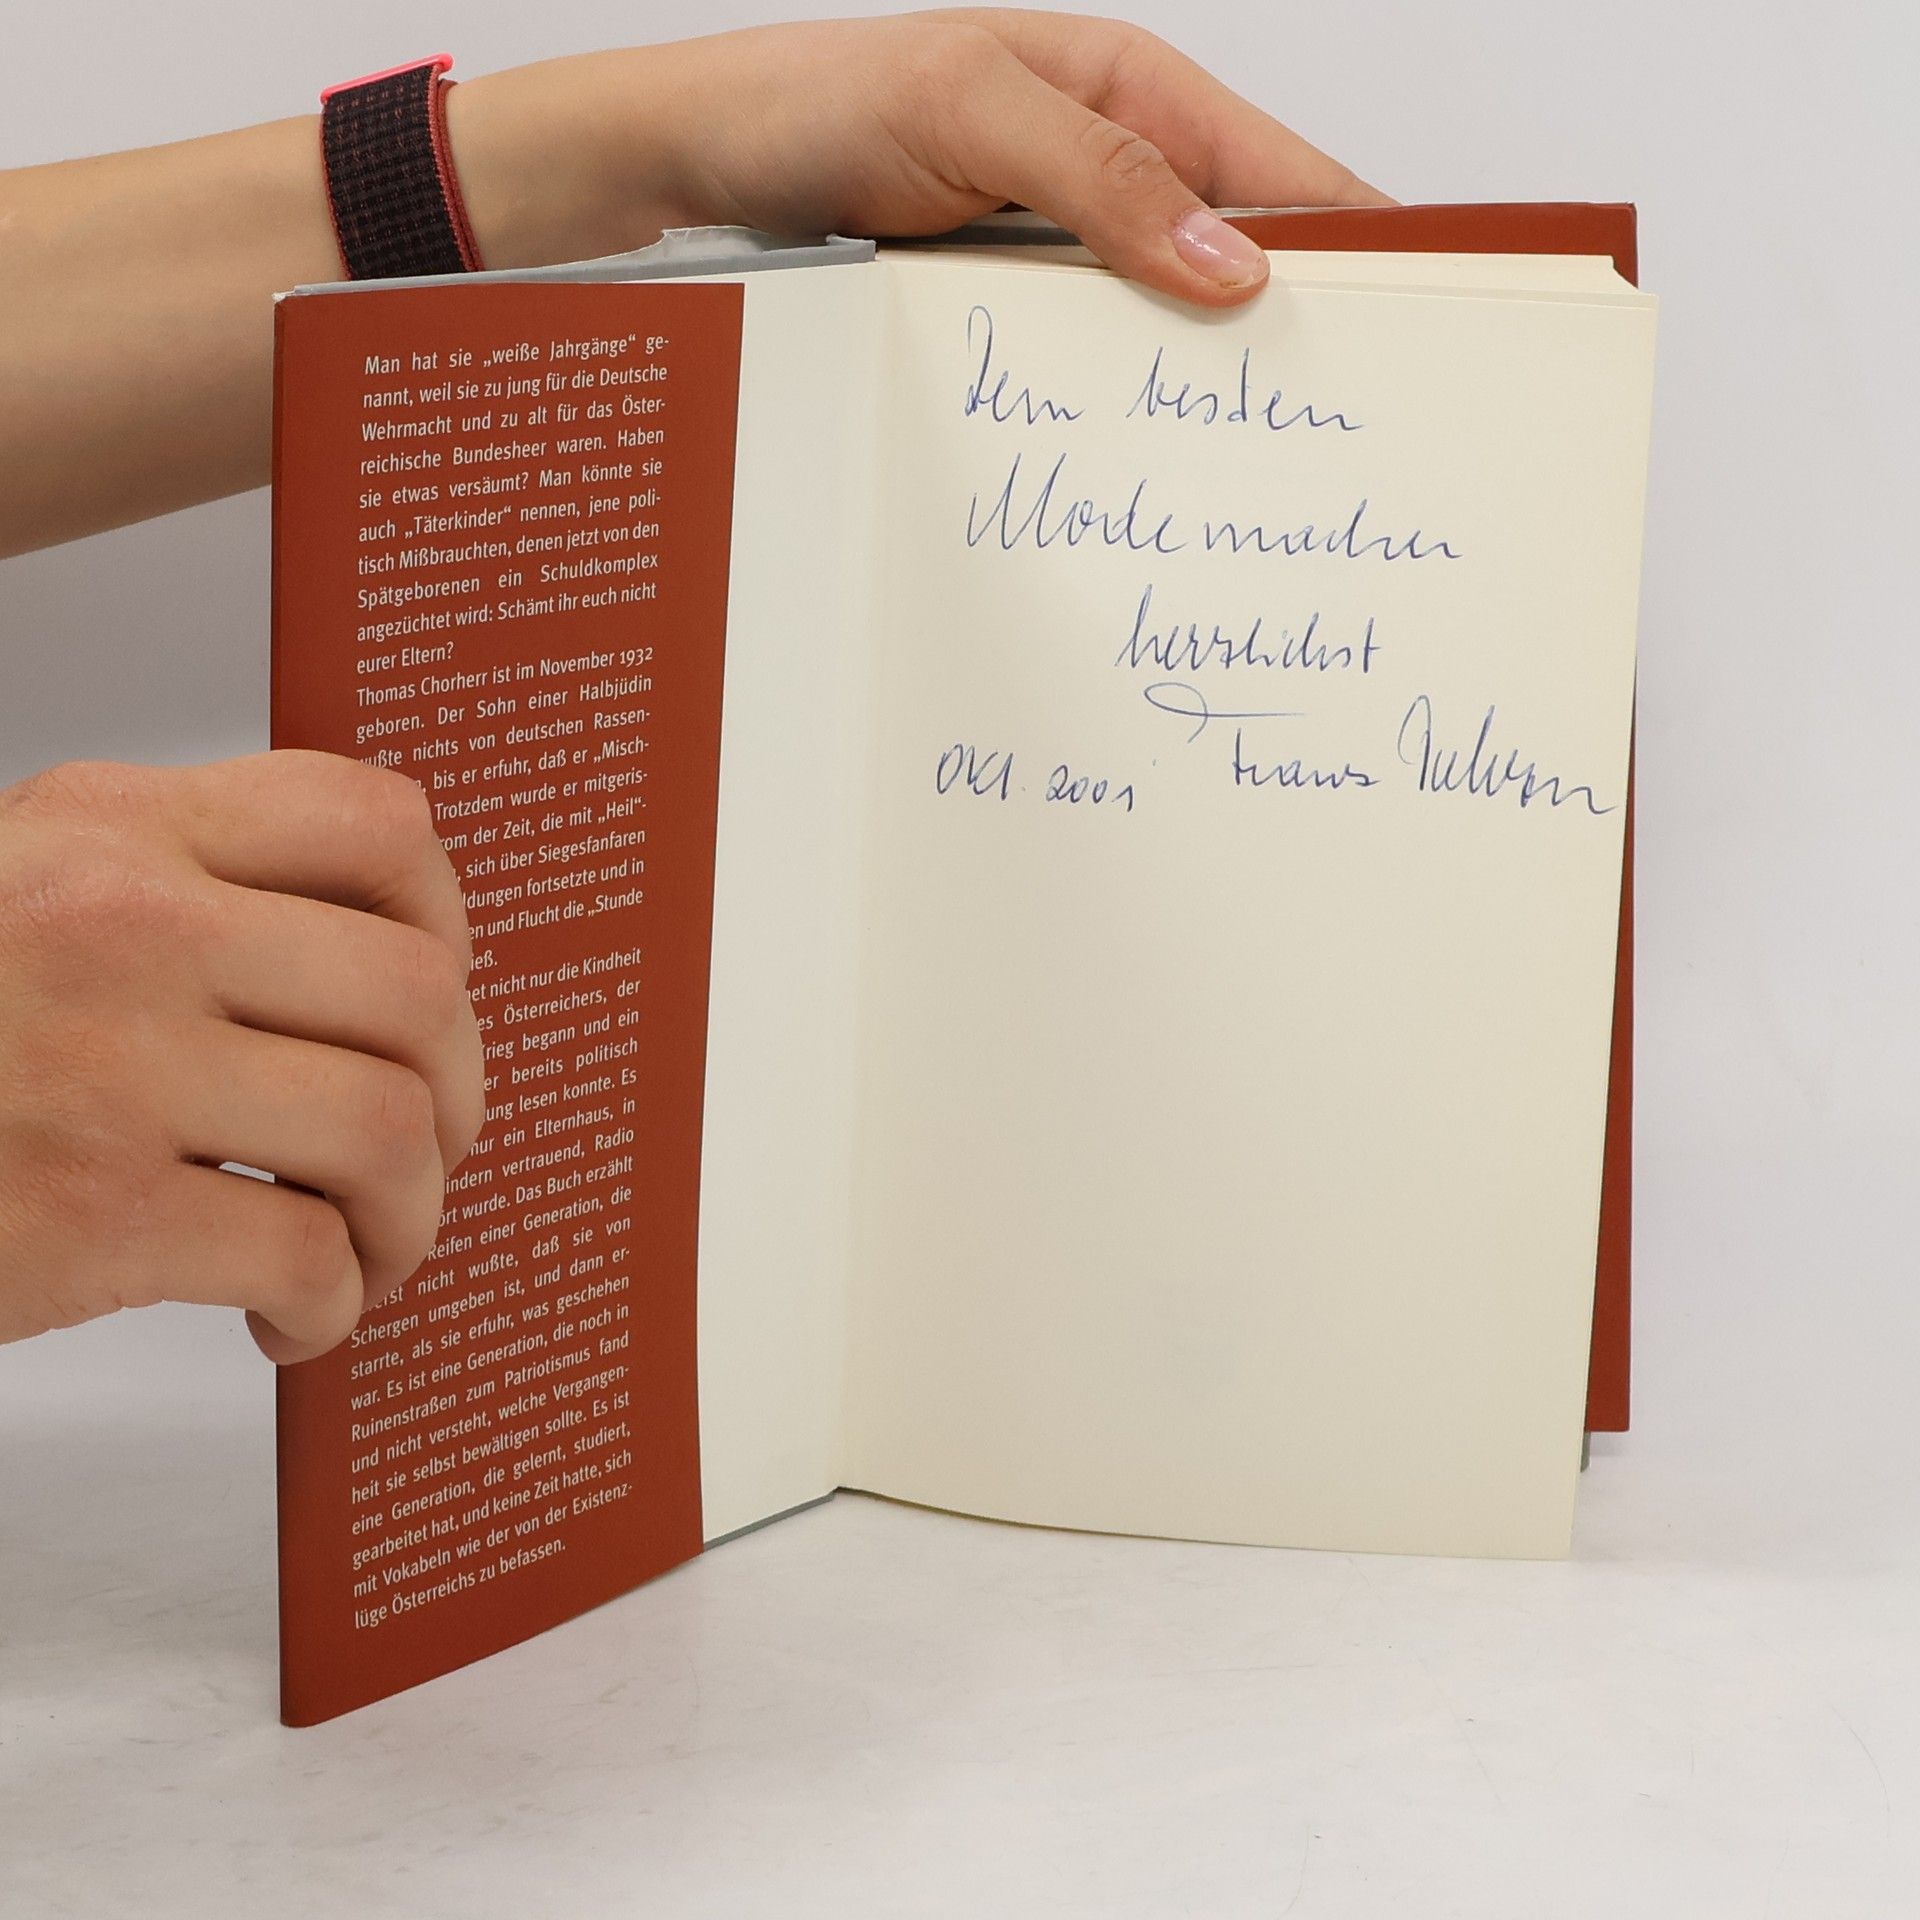 Man hat sie „weiße Jahrgänge“ ge-
nannt, weil sie zu jung für die Deutsche
Wehrmacht und zu alt für das Öster-
reichische Bundesheer waren. Haben
sie etwas versäumt? Man könnte sie
auch „Täterkinder“ nennen, jene poli-
tisch Mißbrauchten, denen jetzt von den
Spätgeborenen ein Schuldkomplex
angezüchtet wird: Schämt ihr euch nicht
eurer Eltern?
Thomas Chorherr ist im November 1932
geboren. Der Sohn einer Halbjüdin
wußte nichts von deutschen Rassen-
bis er erfuhr, daß er „Misch-
Trotzdem wurde er mitgeris-
der Zeit, die mit „Heil“-
sich über Siegesfanfaren
fortsetzte und in
und Flucht die „Stunde
nicht nur die Kindheit
Österreichers, der
begann und ein
bereits politisch
lesen konnte. Es
nur ein Elternhaus, in
vertrauend, Radio
wurde. Das Buch erzählt
Reifen einer Generation, die
nicht wußte, daß sie von
Schergen umgeben ist, und dann er-
starrte, als sie erfuhr, was geschehen
war. Es ist eine Generation, die noch in
Ruinenstraßen zum Patriotismus fand
und nicht versteht, welche Vergangen-
heit sie selbst bewältigen sollte. Es ist
eine Generation, die gelernt, studiert,
gearbeitet hat, und keine Zeit hatte, sich
mit Vokabeln wie der von der Existenz-
lüge Österreichs zu befassen.
Dem besten
Modemacher
herzlichst
Okt. 2001